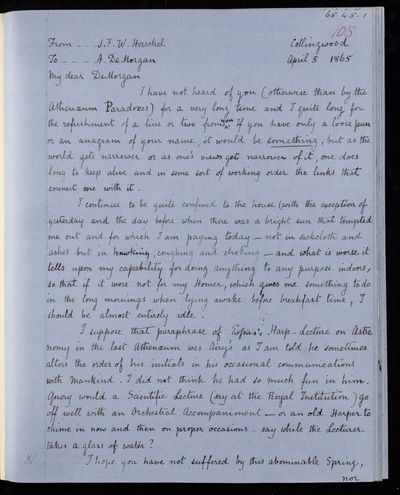 65·4·5·1
103
From - - - J. F. W. Herschel Collingwood
To - - - A. De Morgan April 5 1865
My dear DeMorgan
I have not heard of you (otherwise than by the
Athenæum Paradoxes) for a very long time and I quite long for
the refreshment of a line or two from you. If you have only a loose pun
or an anagram of your name, it would be something, but as the
world gets narrower or as one's views get narrower of it, one does
long to keep alive and in some sort of working order the links that
connect one with it.
I continue to be quite confined to the house (with the exception of
yesterday and the day before when there was a bright sun that tempted
me out and for which I am paying today — not in sackcloth and
ashes but in hawking, coughing and choking — and what is worse it
tells upon my capability for doing anything to any purpose indoors,
so that if it were not for my Homer, which gives me something to do
in the long mornings when lying awake before breakfast time, I
should be almost entirely idle.
I suppose that paraphrase of Harp-Lecture on Astro
nomy in the last Athenæum was Airy's as I am told he sometimes
alters the order of his initials in his occasional communications
with Mankind. I did not think he had so much fun in him.
Query would a Scientific Lecture (say at the Royal Institution) go
off well with an Orchestral Accompaniment — or an old Harper to
chime in now and then on proper occasions — say while the Lecturer
takes a glass of water?
I hope you have not suffered by this abominable Spring,
nor